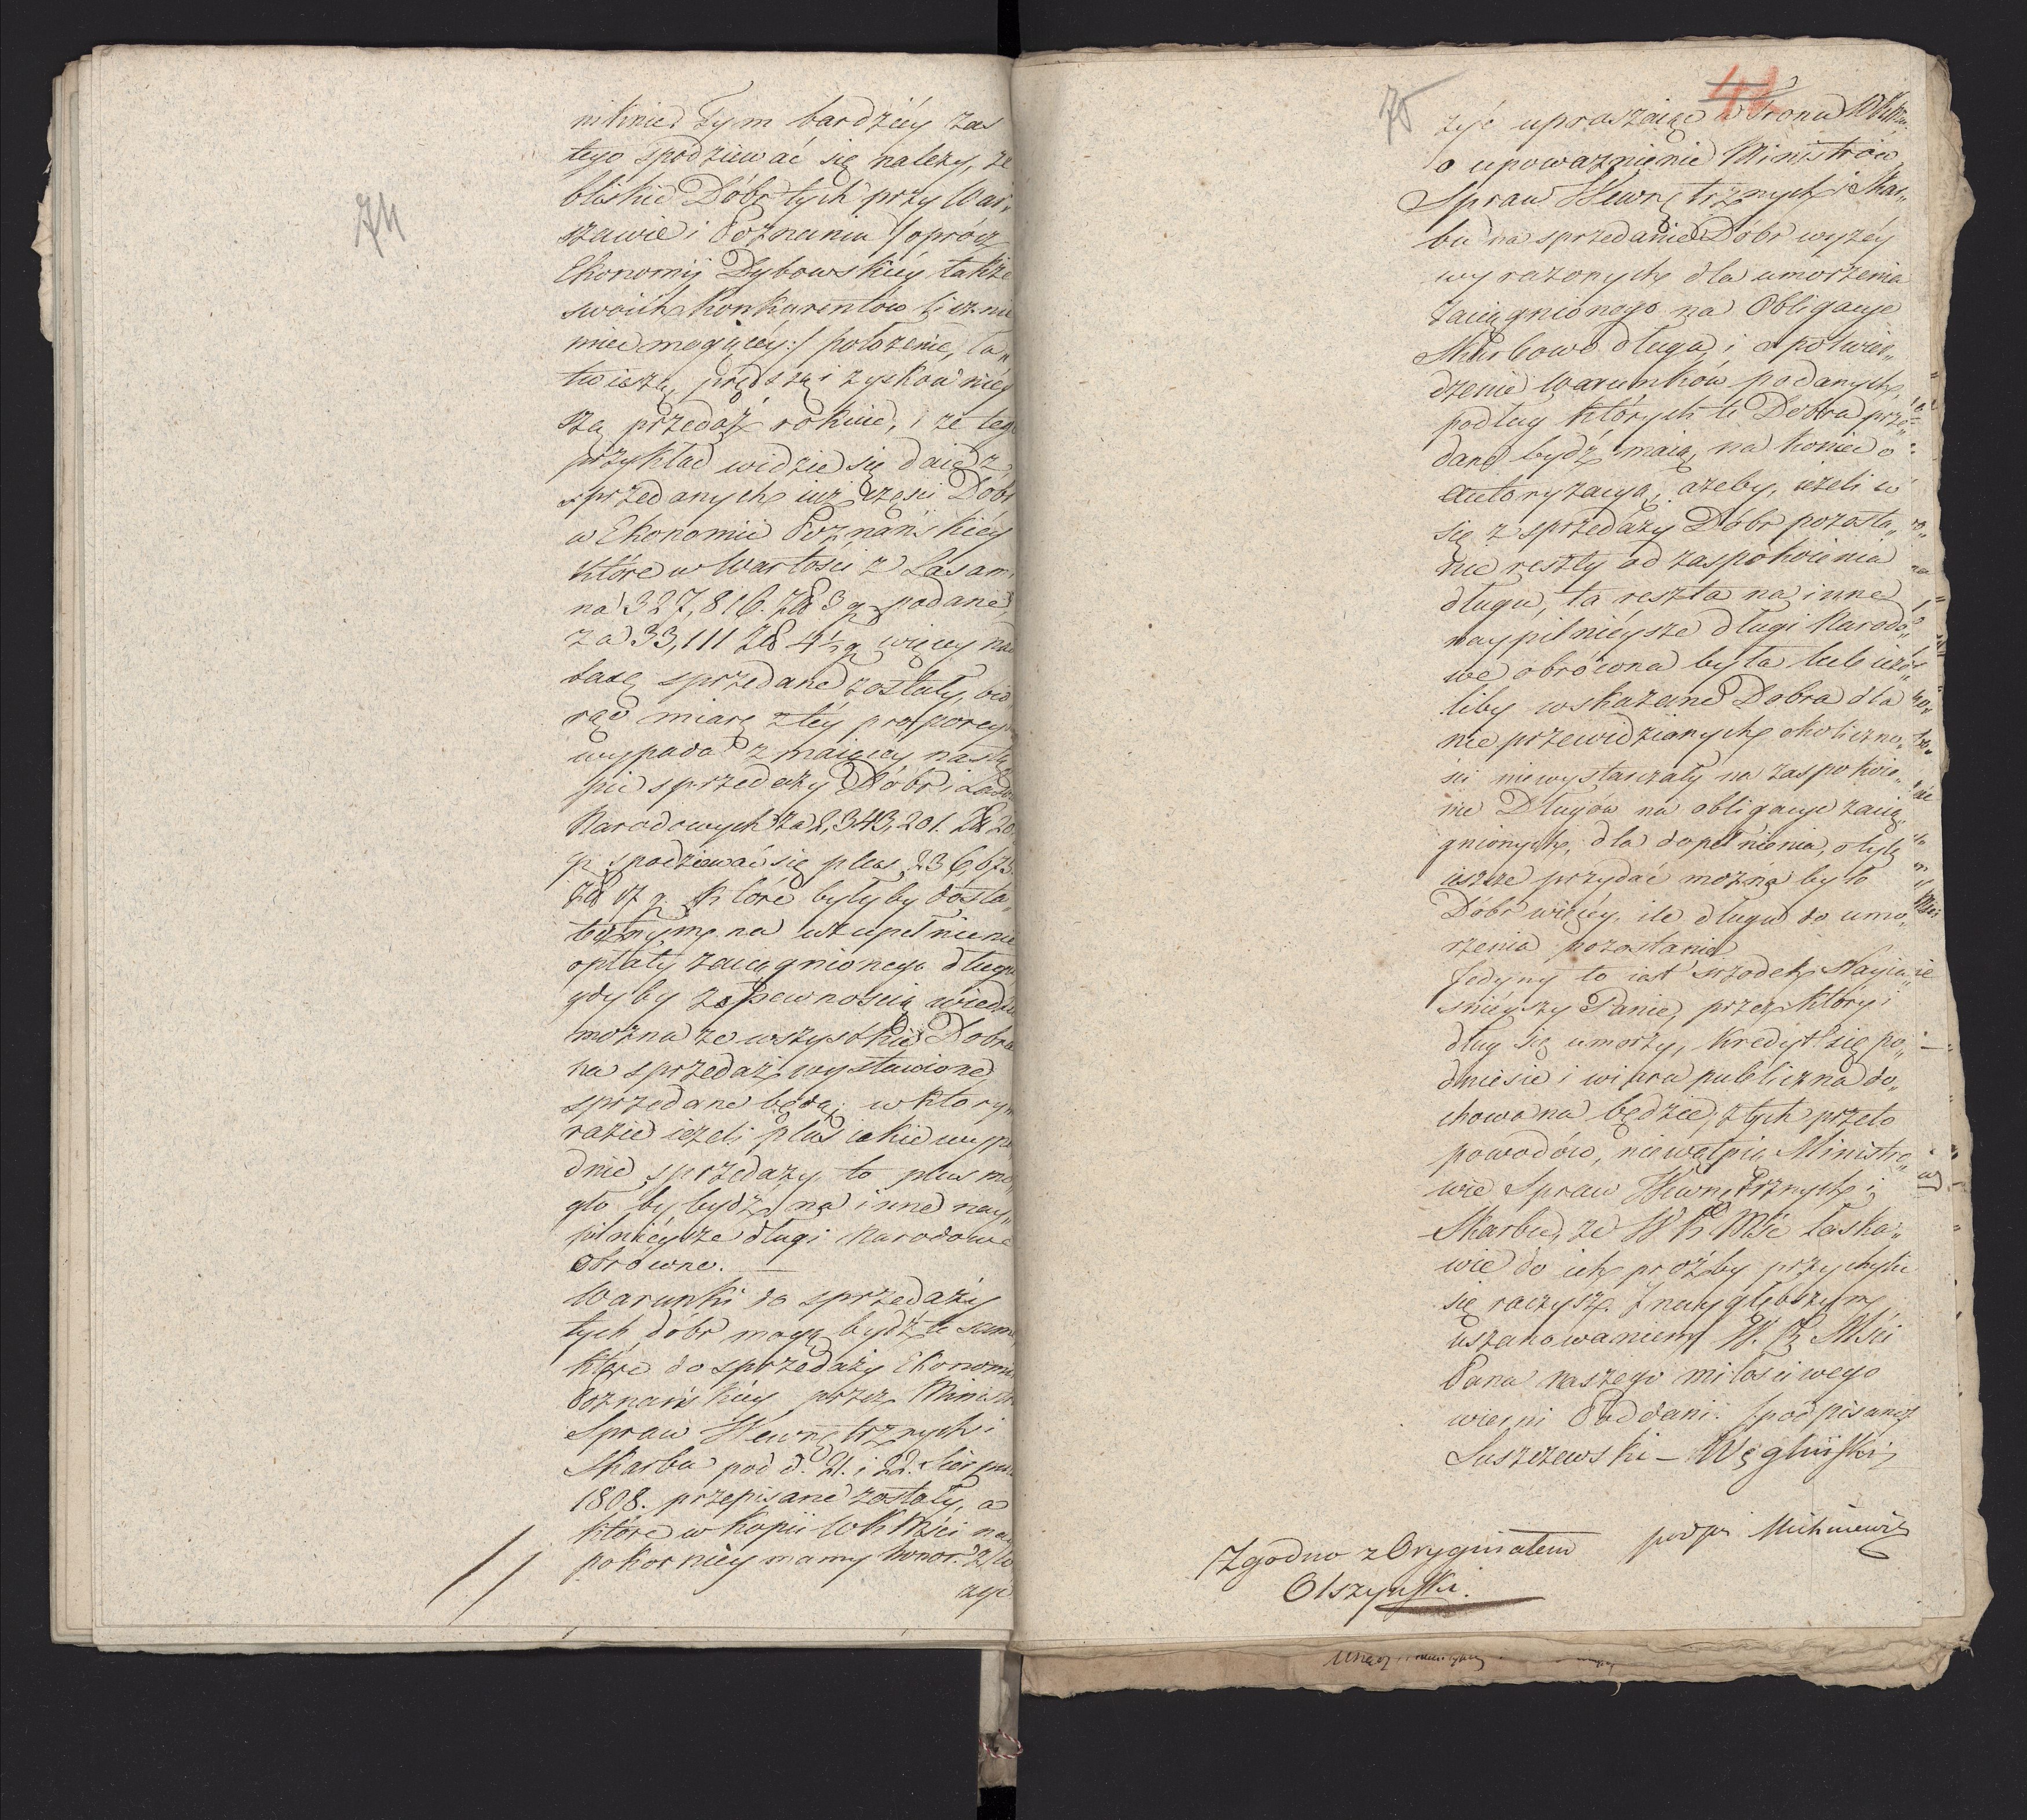 74
niknie. Tym bardziéy zas
tego spodziewać się należy, że
bliskie Dóbr tych przy War„
szawie i Poznaniu /:oprócz
Ekonomij Dybowskiéy także
swoich konkurentów licznie
mieć mogącéy:/ położenie, ła„
twieszą, prędszą i zyskownięy
szą przedaż rokuie, i że tego
przykład widzieć się daie z
sprzedanych iuż części Dóbr
w Ekonomii Poznańskiéy
które w Wartości z Lasami
na 327,816. Zł 3 g podane,
za 33,111 Zł 4½ g więcey nad
taxę sprzedane zostały, bio
rąc miarę z téy proporcyi
wypada z maiącey nastą
pić sprzedaży Dóbr i Lasów
Narodowych za 2,343,201. Zł 20
g spodziewać się plus 236,673.
Zł 17 g. które byłyby dosta„
tecznym na uzupełnienie
opłaty zaciągnionego długu
gdyby z pewnością wiedzieć
można że wszystkie Dobra
na sprzedaż wystawione,
sprzedane będą; w którym
razie ieżeli plus iakie wypa
dnie sprzedaży, to plus mo„
gło by bydź na inne nay„
pilnieysze długi Narodowe
obrócone. —
Warunki do sprzedaży
tych dóbr mogą bydź te same
które do sprzedaży Ekonomii
Poznańskiéy przez Ministr
Spraw Wewnętrznych i
Skarbu pod d. 21. i 22. Sierpnia
1808. przepisane zostały, a
które w kopii WK Mści nay
pokorniéy mamy honor zło
żyć
75
42
żyć upraszaiąc z Tronu WKMści
o upoważnienie Ministrów
Spraw Wewnętrznych i Skar„
bu na sprzedanie Dóbr wyżéy
wyrażonych dla umorzenia
zaciągnionego na Obligacye
Skarbowe długu, i o potwier„
dzenie Warunków podanych,
podług których te Dobra prze„
dane bydź maią, na koniec o
Autoryzacyą, ażeby, ieżeli w
się z sprzedaży Dóbr pozosta„
nie reszty od zaspokoienia
długu, ta reszta na inne
naypilniéysze długi Narodo„
we obrócona była lub ieże„
liby wskazane Dobra dla
nie przewidzianych okoliczno„
ści niewystarczały na zaspokoie„
nie Długów na obligacye zacią„
gnionych, dla dopełnienia, o tyle
ieszcze przydać można było
Dóbr więcéy, ile długu do umo„
rzenia pozostanie
Jedyny to iest srzodek Nayia„
śniéyszy Panie, przez który i
dług się umorzy, kredyt się po„
dniesie i wiara publiczna do„
chowana będzie; z tych przeto
powodów, niewątpią Ministro„
wie Spraw Wewnętrznych i
Skarbu, że W K Mść łaska„
wie do ich prośby przychylić
się raczysz. Z naygłębszym
uszanowaniem W. K. Mści
Pana naszego miłościwego
wierni Poddani. /podpisano/
Łuszczewski – Węgliński
podpi Michniewicz
Zgodno z Oryginałem
Olszyński.